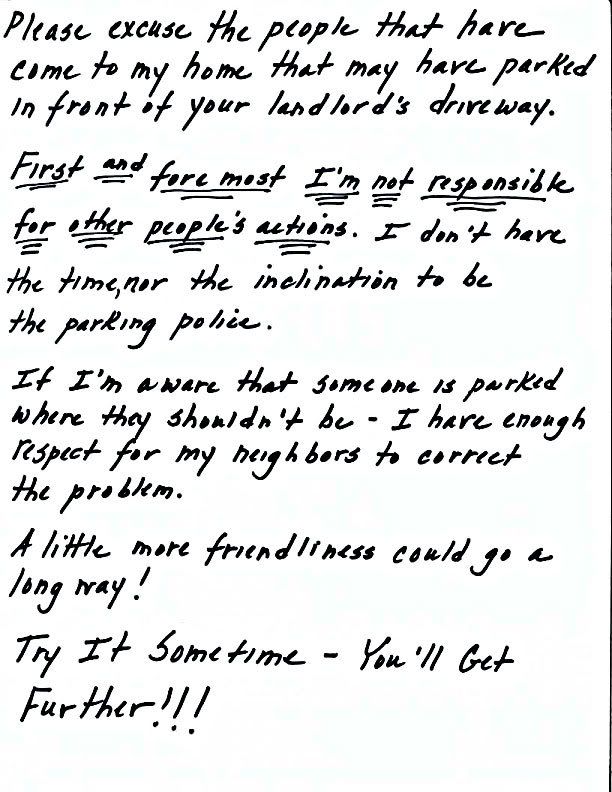 Please excuse the people that have
come to my home that may have parked
in front of your landlord's driveway.
First and fore most I'm not responsible
for other people's actions. I don't have
the time, nor the inclination to be
the parking police.
If I'm aware that someone is parked
where they shouldn't be - I have enough
respect for my neighbors to correct
the problem.
A little more friendliness could go a
long way!
Try It Sometime - You'll Get
Further!!!